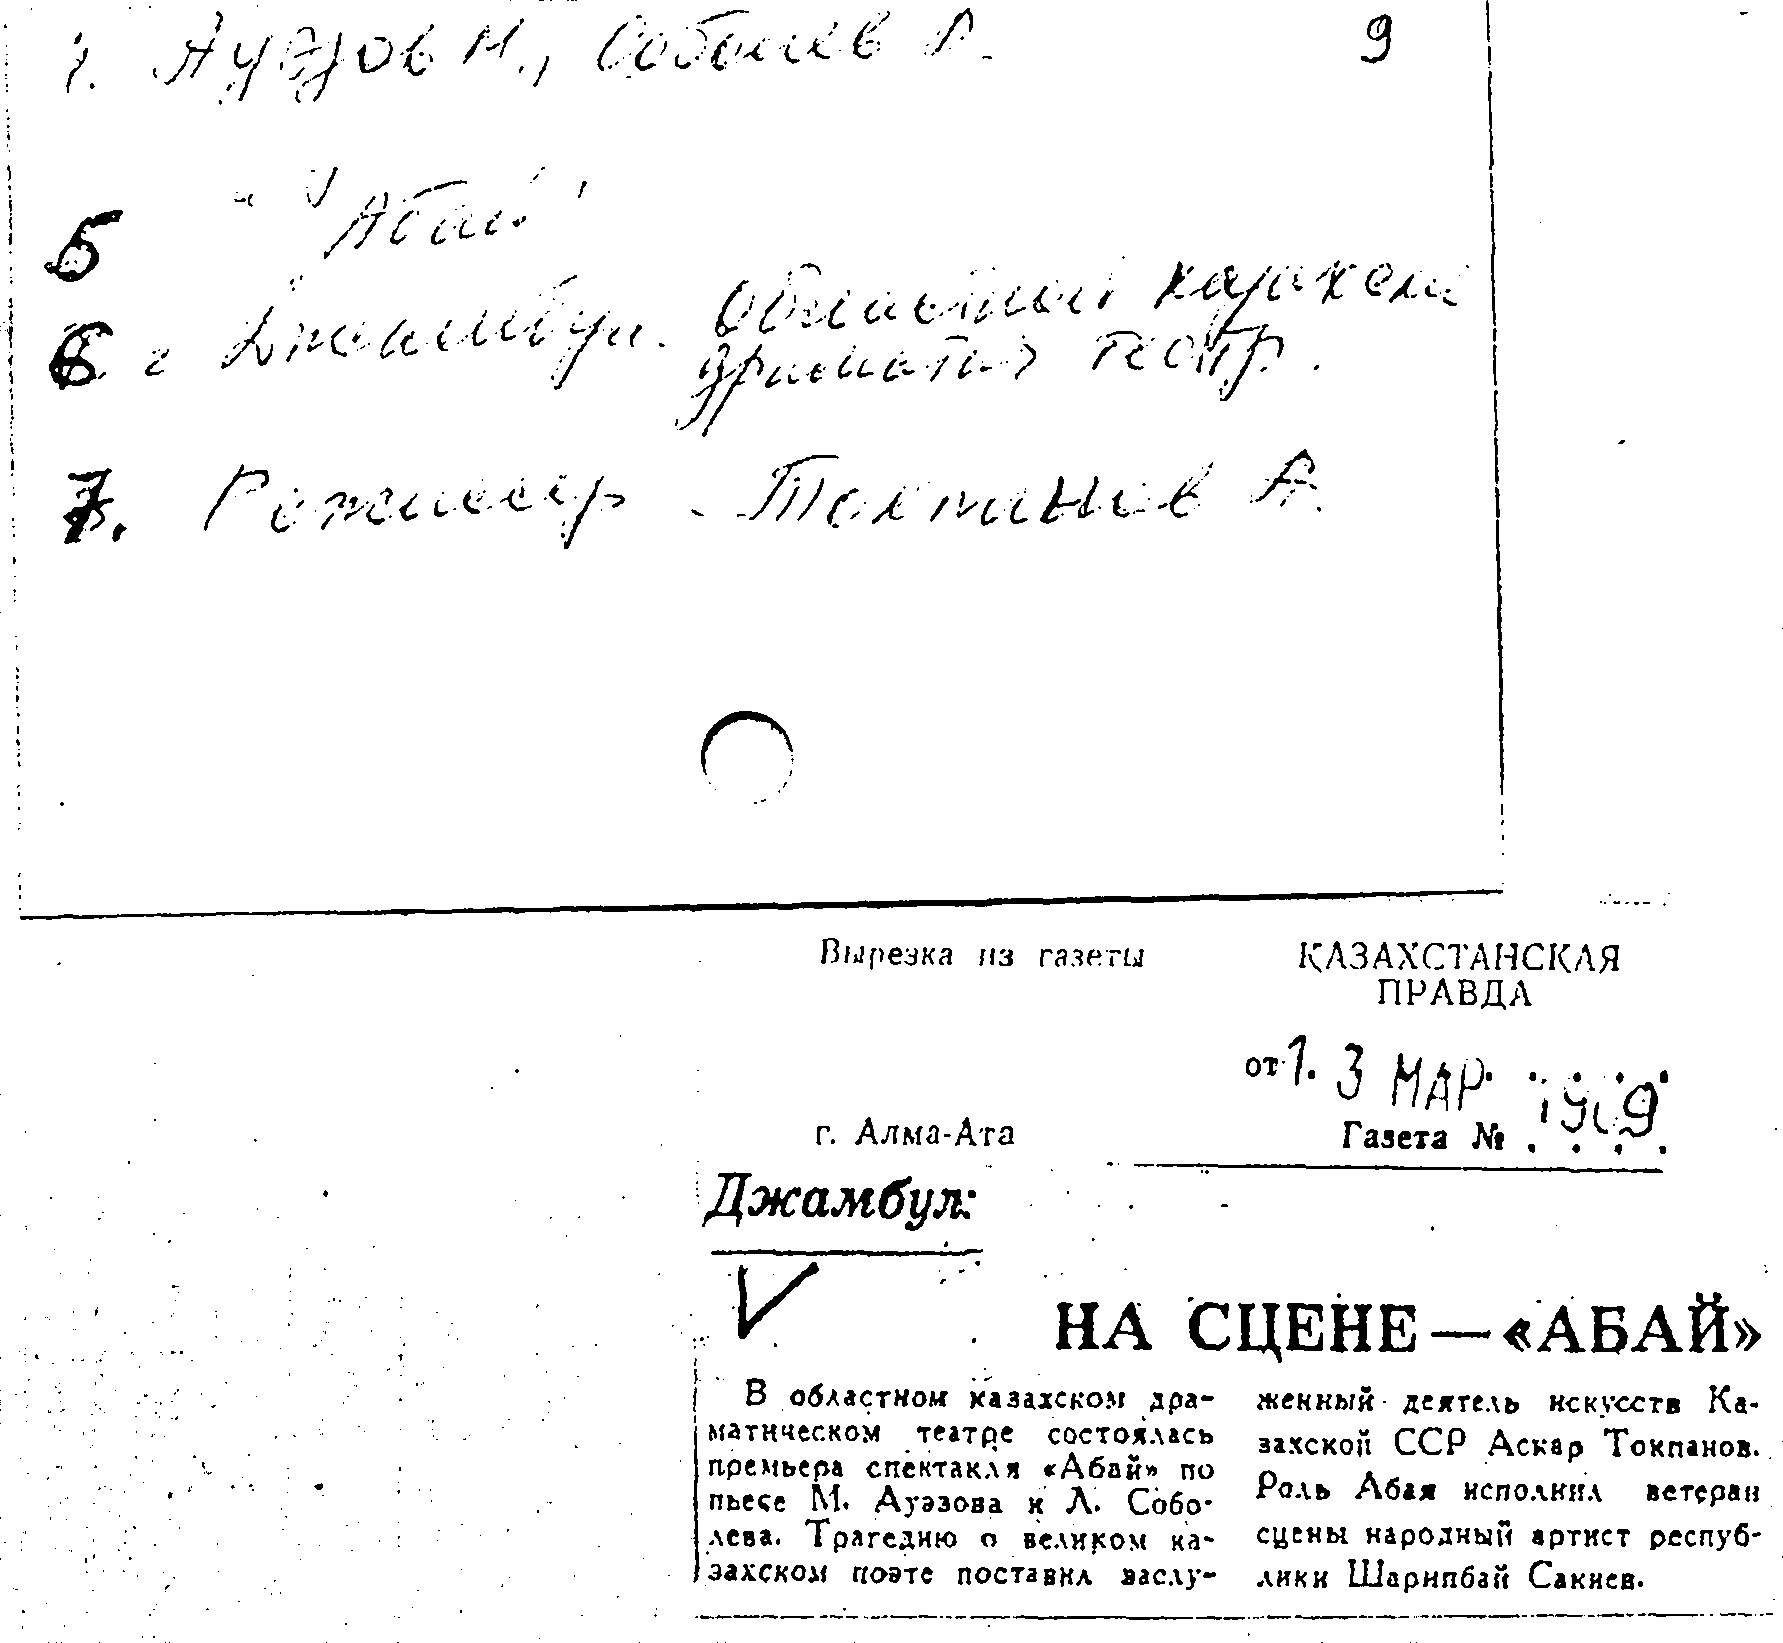 1. Ауэзов М., Соболев Л.
9
5 "Абай"
6. г Джамбул. Областной казахский
драматич театр.
7. Режиссер - Токпанов А.
Вырезка из газеты
КАЗАХСТАНСКАЯ
ПРАВДА
от 1. 3 МАР.
г. Алма-Ата
Газета №
Джамбул:
НА СЦЕНЕ — «АБАЙ»
В областном казахском дра-
матическом театре состоялась
премьера спектакля «Абай» по
пьесе М. Ауэзова и Л. Собо-
лева. Трагедию о великом ка-
захском поэте поставил заслу-
женный деятель искусств Ка-
захской ССР Аскар Токпанов.
Роль Абая исполнил ветеран
сцены народный артист респуб-
лики Шарипбай Сакиев.